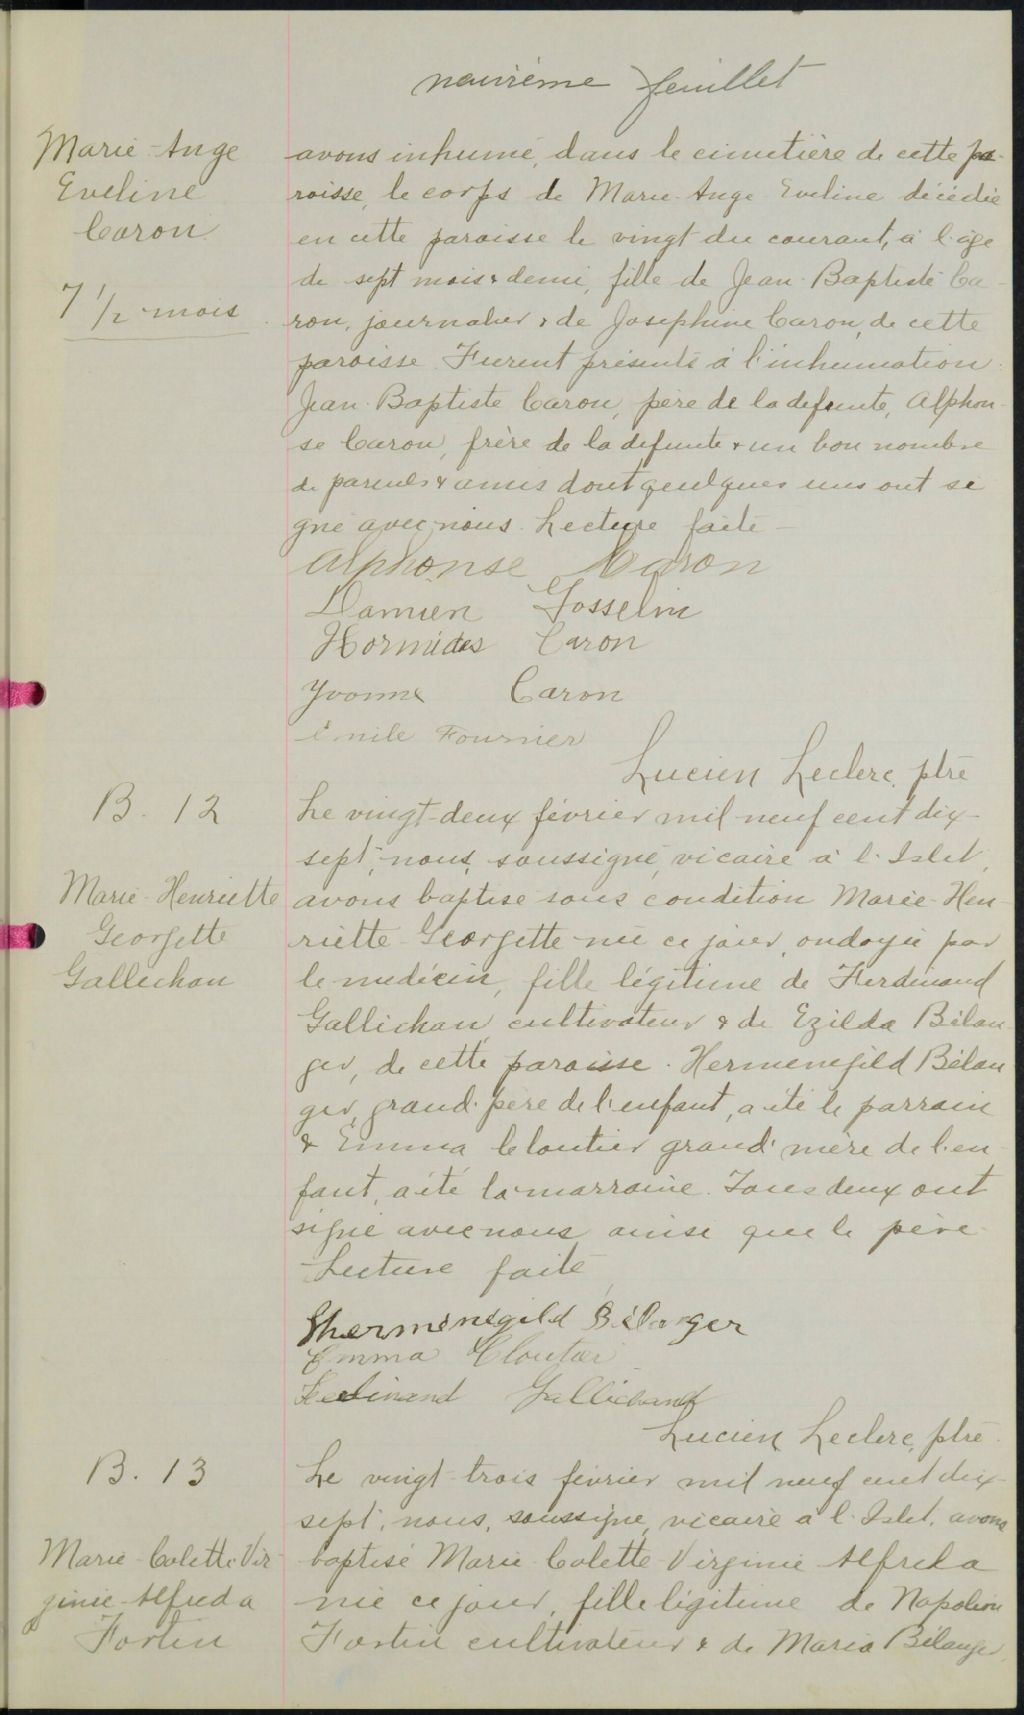 neuvième feuillet
Marie-Ange
Eveline
Caron
7 1/2 mois
avons inhumé, dans le cimetière de cette pa-
roisse, le corps de Marie-Ange Eveline décédée
en cette paroisse le vingt du courant, à l'âge
de sept mois & demi, fille de Jean-Baptiste Ca-
ron, journalier & de Joséphine Caron, de cette
paroisse. Furent présents à l'inhumation
Jean-Baptiste Caron, père de la défunte, Alphon-
se Caron, frère de la défunte & un bon nombre
de parents & amis dont quelques uns ont si
gné avec nous. Lecture faite
Alphonse Caron
Damien Gosselin
Hormidas Caron
Yvonne Caron
Emile Fournier
Lucien Leclerc, ptre
B. 12
Marie-Henriette
Georgette
Gallichan
Le vingt-deux février mil neuf cent dix-
sept, nous, soussigné, vicaire à l'Islet,
avons baptisé sous condition Marie-Hen-
riette-Georgette née ce jour, ondoyée par
le médecin, fille légitime de Ferdinand
Gallichan, cultivateur & de Ezilda Bélan
ger, de cette paroisse. Hermenegild Bélan
ger, grand'père de l'enfant, a été le parrain
& Emma Cloutier grand'mère de l'en
fant, a été la marraine. Tous deux ont
signé avec nous ainsi que le père.
Lecture faite
Shermenegild Bélanger
Emma Cloutier
Ferdinand Gallichand
Lucien Leclerc, ptre.
B. 13
Marie-Colette-Vir-
ginie-Alfreda
Fortin
Le vingt-trois février mil neuf cent dix-
sept, nous, soussigné, vicaire à l'Islet, avons
baptisé Marie-Colette-Virginie Alfreda
née ce jour, fille légitime de Napoléon
Fortin cultivateur & de Maria Bélanger,